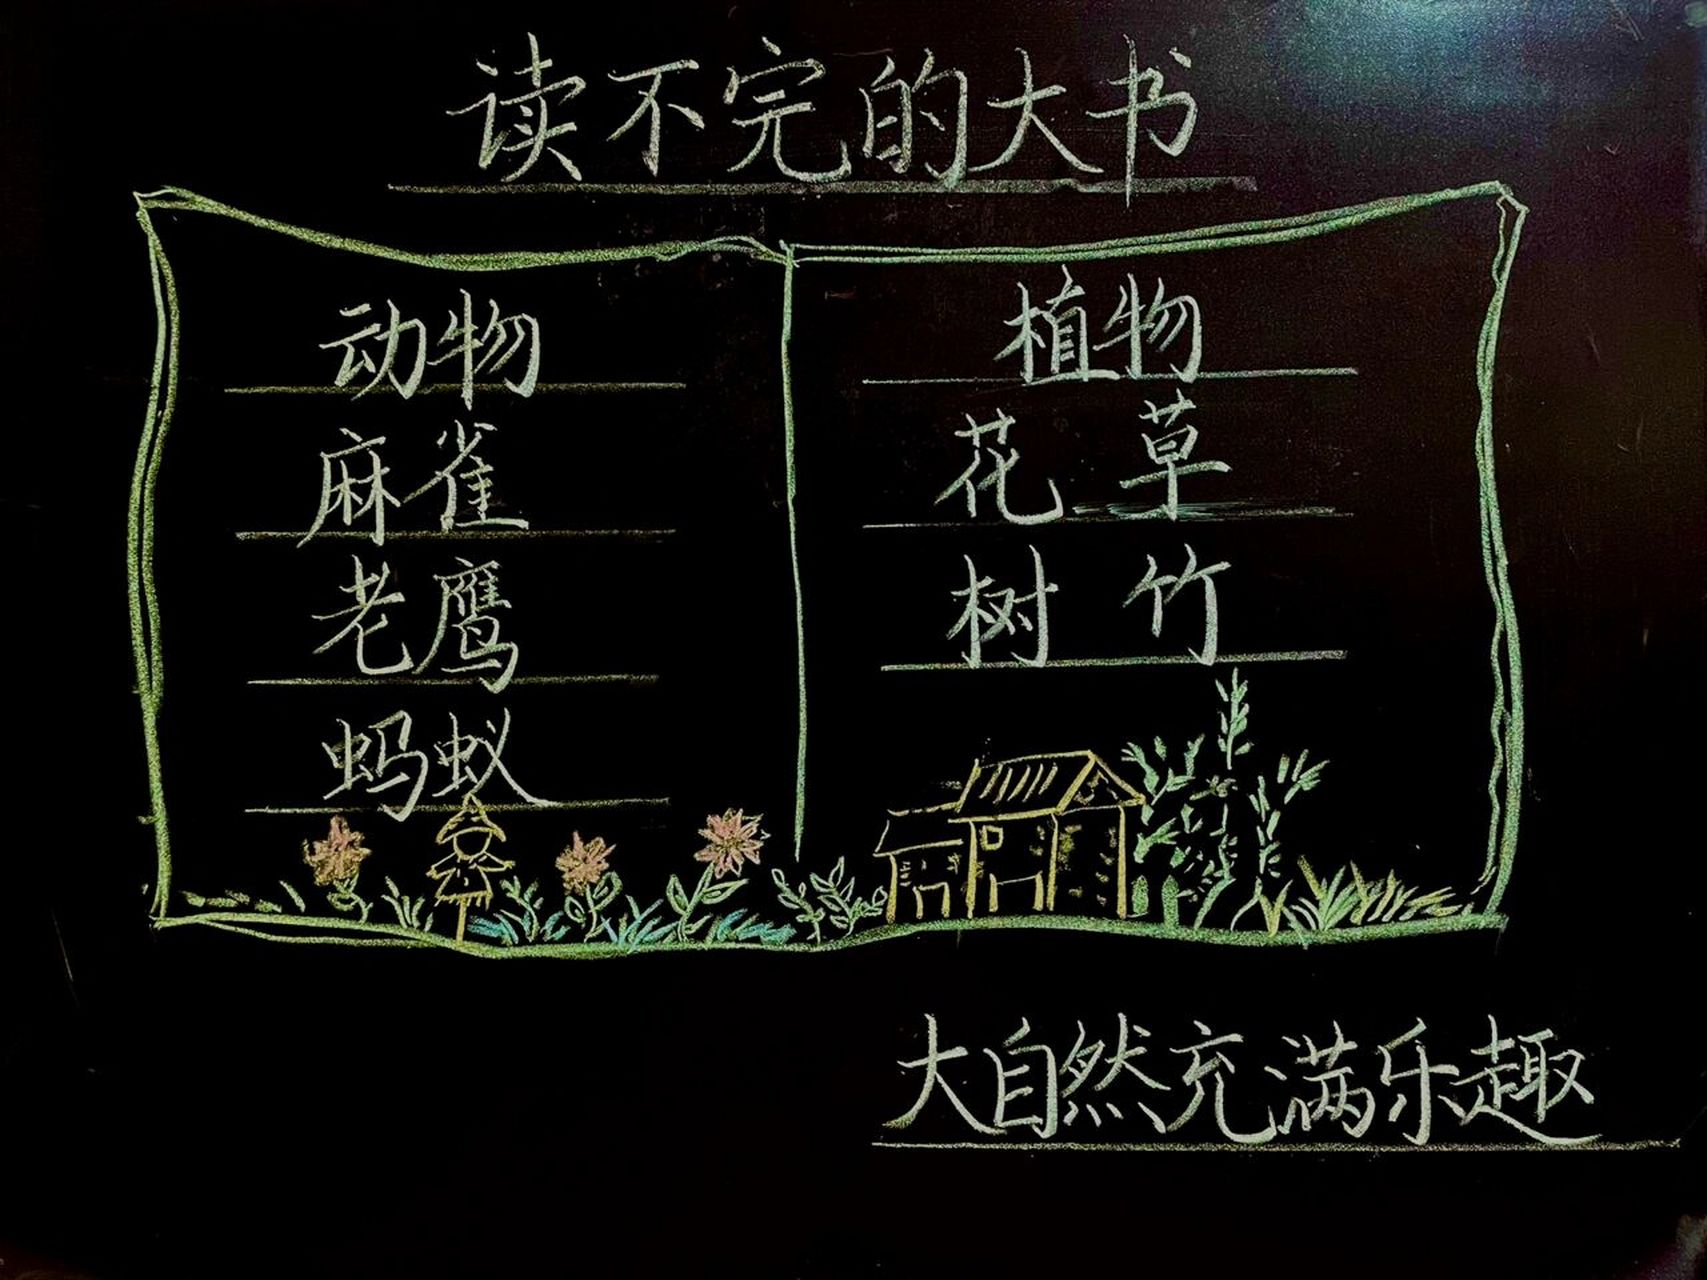 读不完的大书
动物
麻雀
老鹰
蚂蚁
植物
花 草
树 竹
大自然充满乐趣